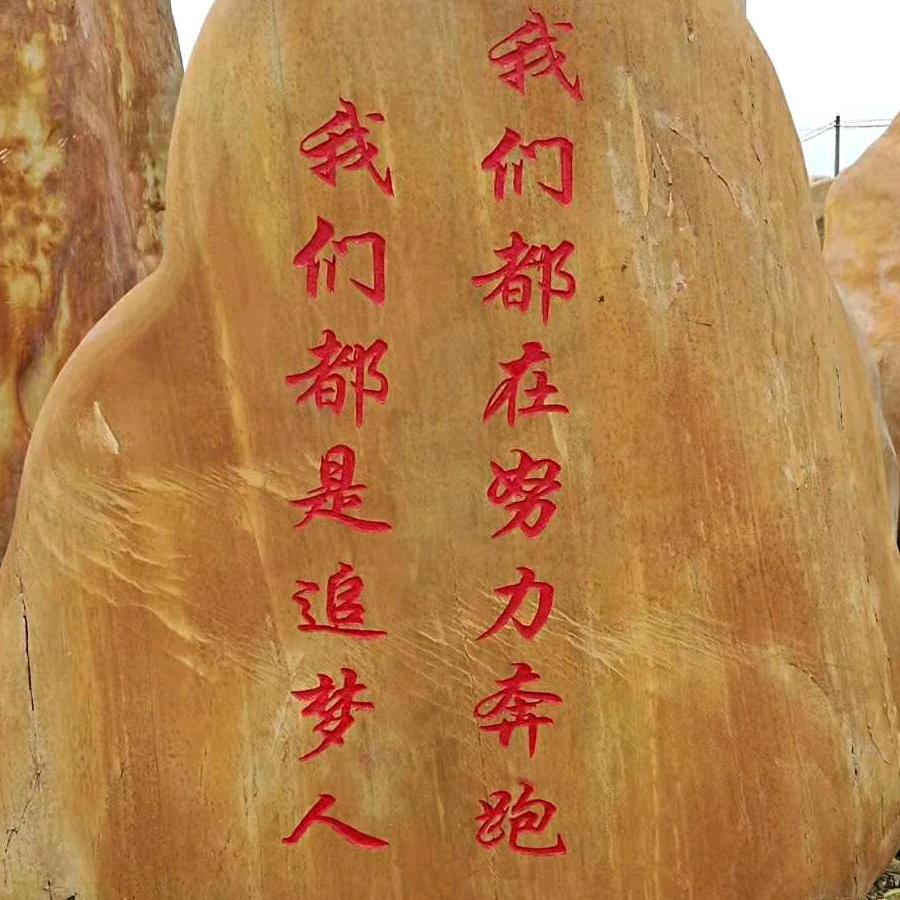 我们都在努力奔跑
我们都是追梦人